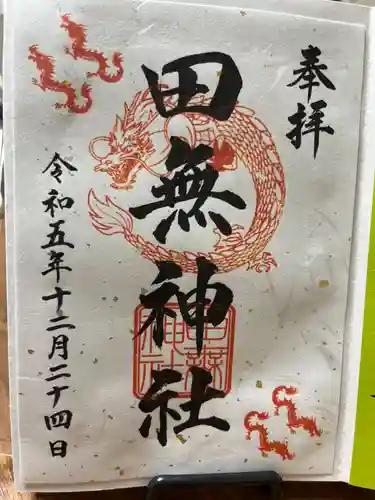 奉拝
田無神社
令和五年十二月二十四日
田無神社